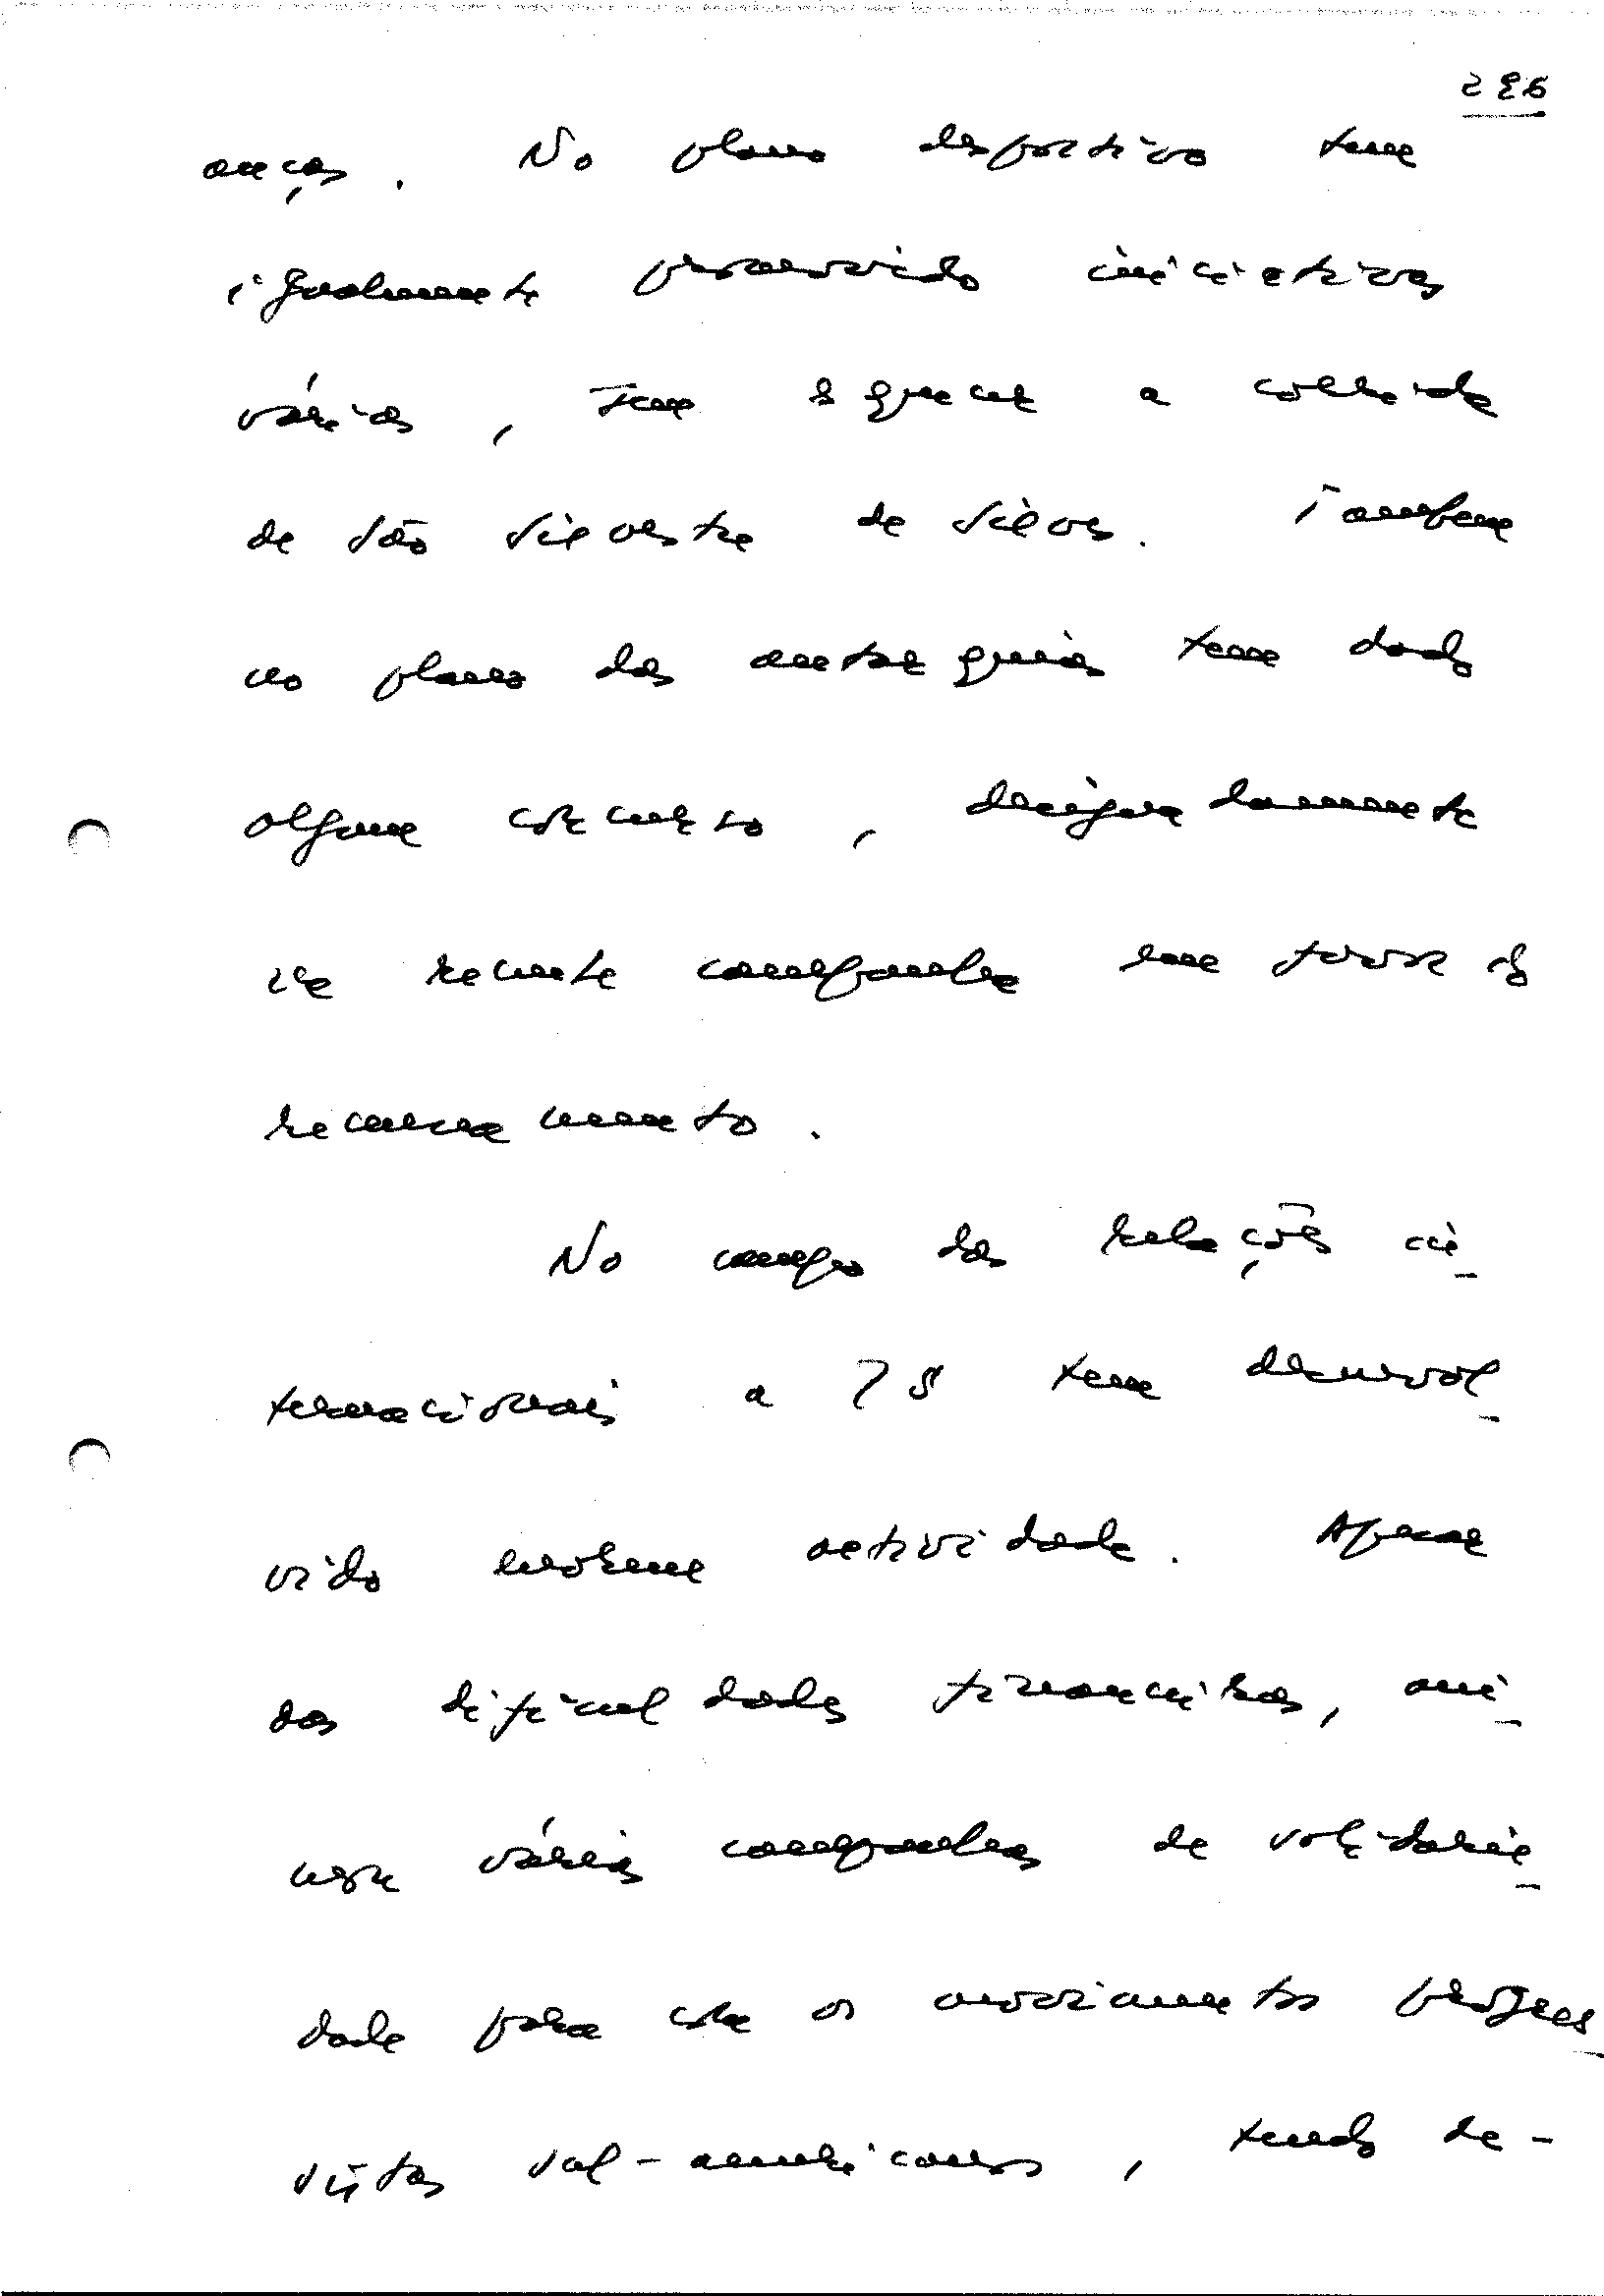 226
anças. No plano desportivo tem
igualmente promovido iniciativas
várias, sem esquecer a corrida
de São Silvestre de Silves. Também
no plano das autarquias tem dado
algum concurso, designadamente
na recente campanha em favor do
recenseamento.
No campo das relações in-
ternacionais a JS tem desenvol-
vido enorme actividade. Apesar
das dificuldades financeiras, ani-
mou várias campanhas de solidarie-
dade para com os movimentos progres-
sistas sul-americanos, tendo de-